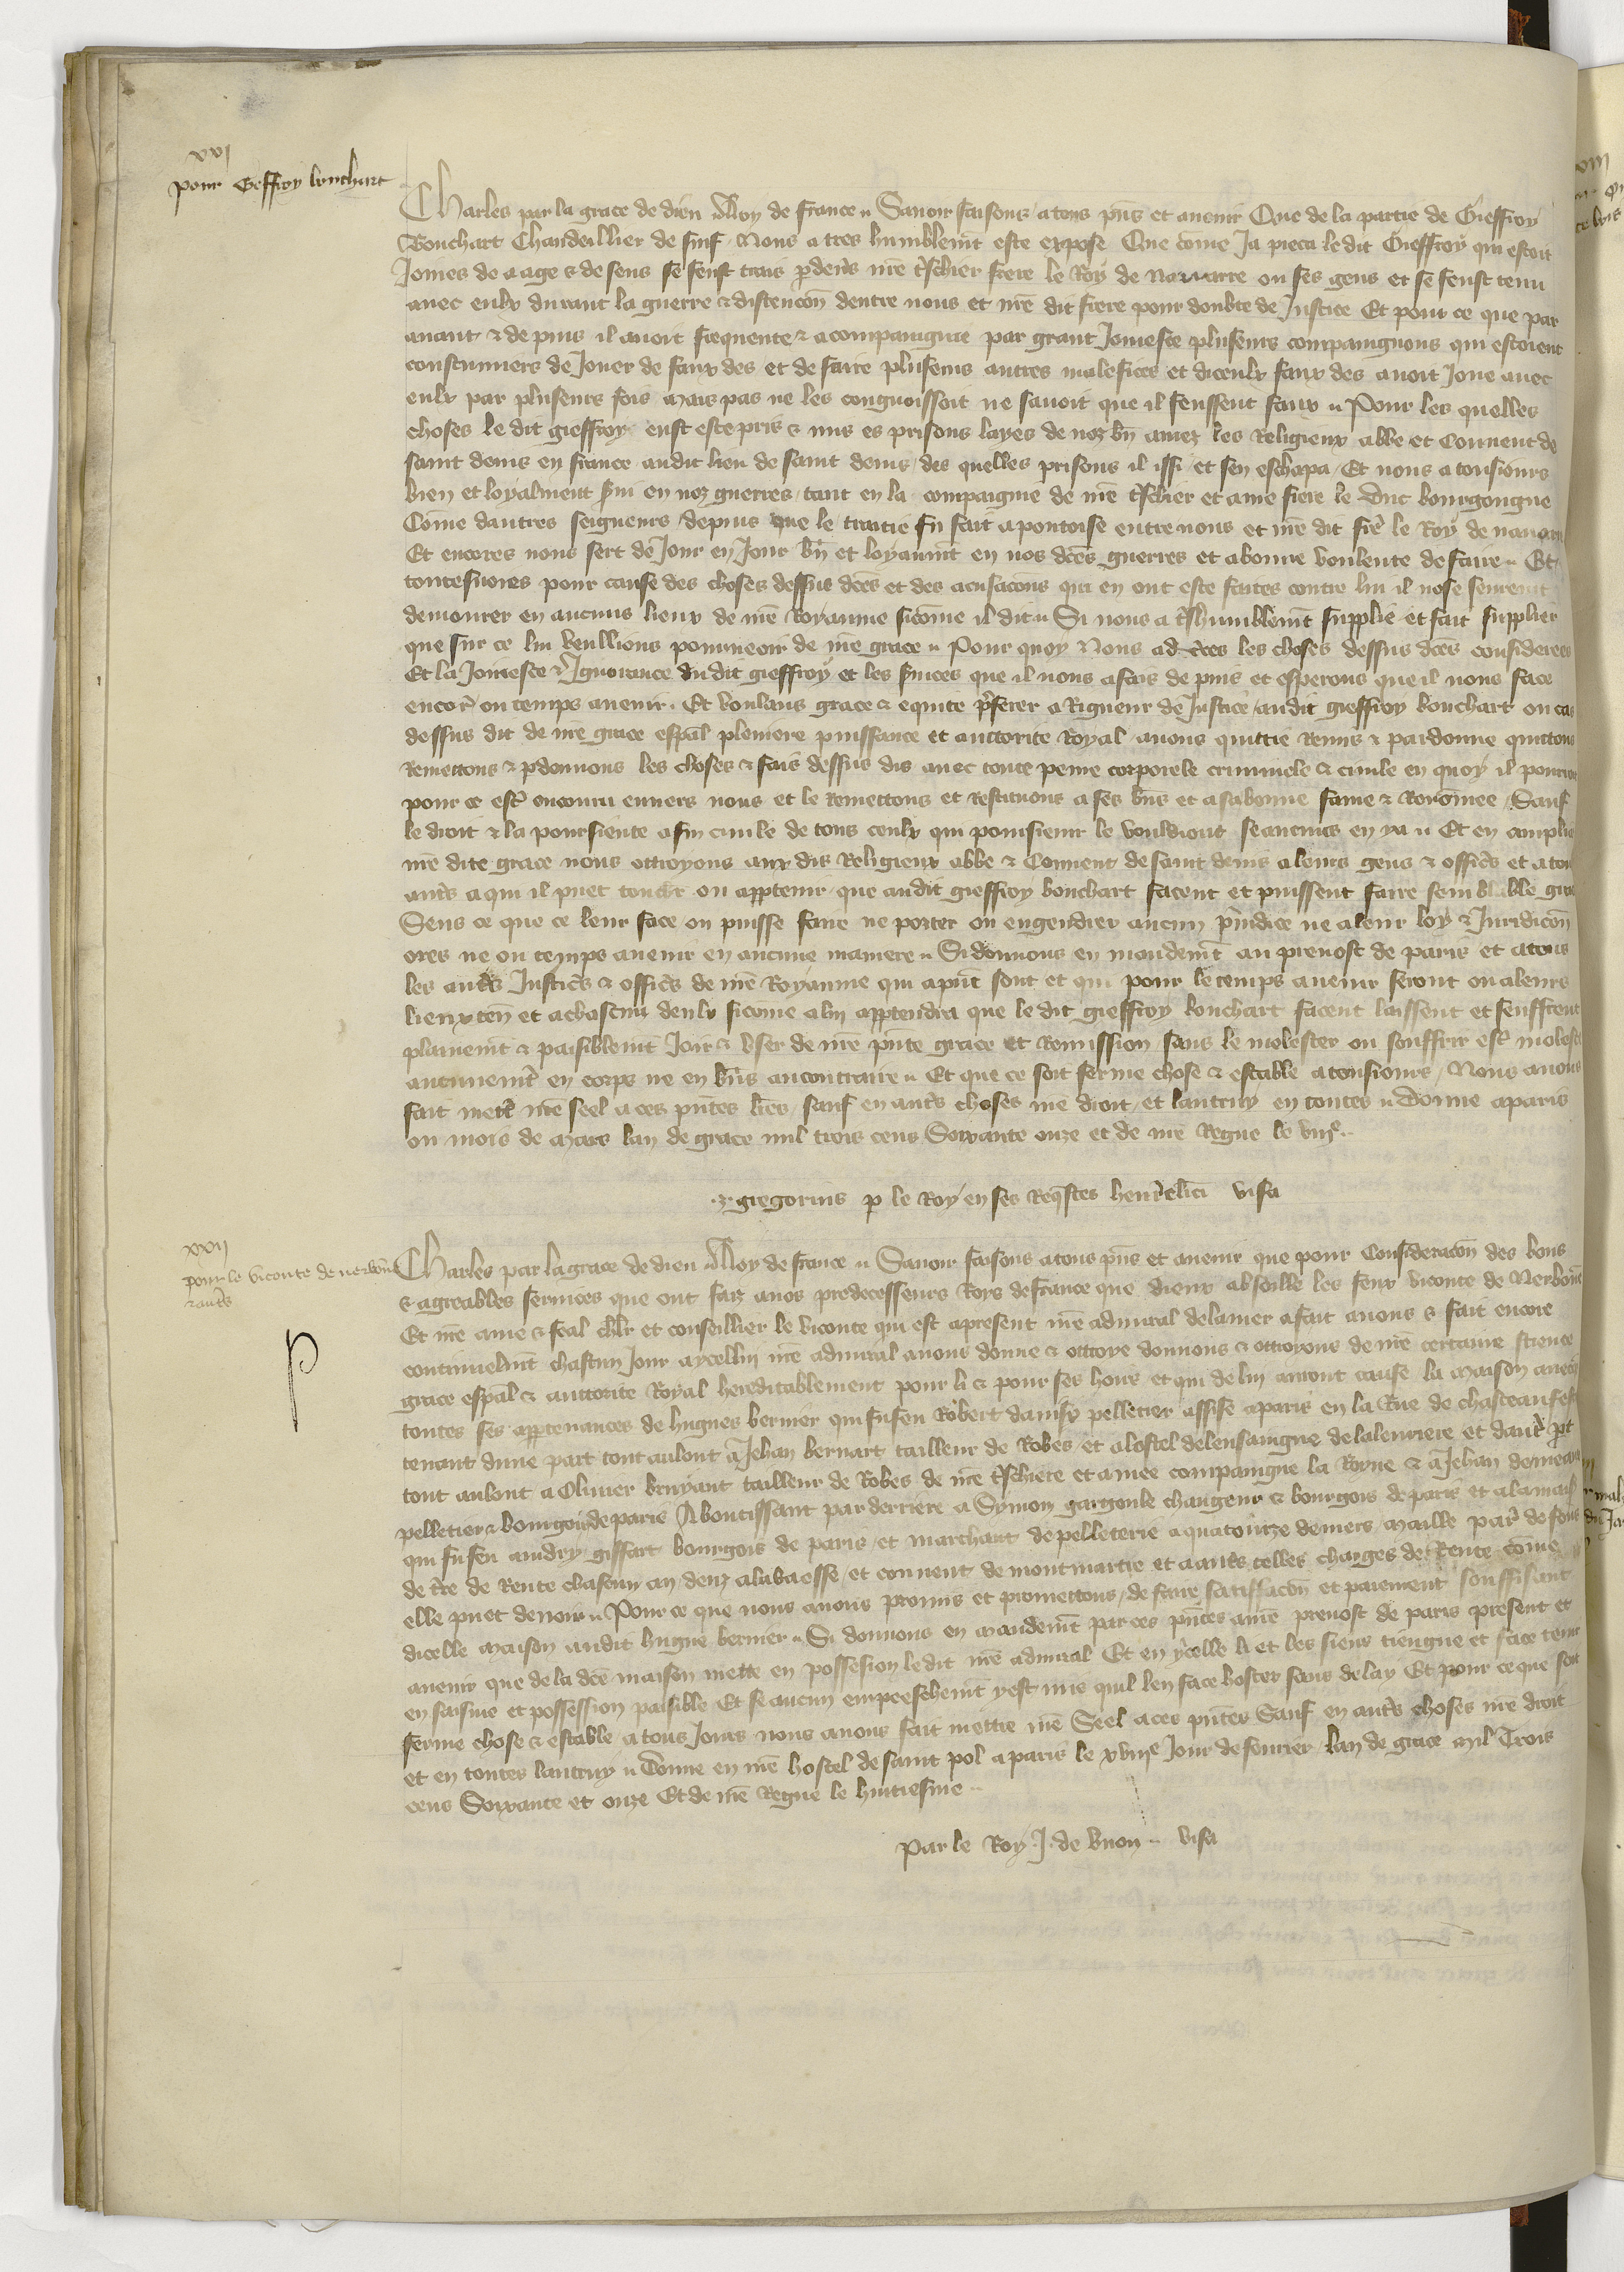 xxj
pour Geffroy bouchart
Charles par la grace de dieu Roy de france Sauoir faisons atous pñs et auenir Que de la partie de Gieffroy
Bouchart Chandeillier de suif Nous a tres humblemt este expose Que cõme Ja pieca le dit Gieffroy qui estoit
Joines de aage & de sens se feust trais pdeuers nre tschier frere le Roy de Nauarre ou ses gens et se feust tenu
auec eulx durant la guerre & distencon dentre nous et nre dit frere pour doubte de Justice Et pour ce que par
auant & depuis il auoit frequente & acompaingnie par grant Joineste pluseurs compaingnons qui estoient
coustumiers de Jouer de faux des et de faire pluseurs autres malefices et diceulx faux des auoit Joue auec
eulx par pluseurs fois Mais pas ne les congnoissoit ne sauoit que il feussent faux Pour les quelles
choses le dit gieffroy eust este pris & mis es prisons layes de noz bñ amez les Religieux abbe et Conuent de
saint denis en france audit lieu de saint denis des quelles prisons il issi et sen eschapa Et nous a tousiours
bien et loyalment serui en noz guerres tant en la compaignie de nre tschier et ame frere le Duc bourgongne
Cõme dautres seigneurs depuis que le traitie fu fait apontoise entre nous et nre dit frere le Roy de nauarre
Et encores nous sert de Jour en Jour bñ et loyaumt en nos dces guerres et a bonne voulente de faire Et
toutesuoies pour cause des choses dessus dces et des acusacons qui en ont este faites contre lui il nose seuremt
demourer en aucuns lieux de nre Royaume sicõme il dit Si nous a tshumblemt supplie et fait supplier
que sur ce lui veullions pourueoir de nre grace Pour quoy Nous ad certes les choses dessus dces considerees
Et la Joineste & Ignorance du dit gieffroy et les seruices que il nous a fais depuis et esperons que il nous face
encor ou temps auenir Et voulans grace & equite pferer a Rigueur de Justice audit gieffroy bouchart ou cas
dessus dit de nre grace espal pleniere puissance et auctorite Royal auons quittie Remis & pardonne quittons
Remettons & pdonnons les choses & fais dessus dis auec toute peine corporele criminele & ciuile en quoy il pourroit
pour ce estre encouru enuers nous et le Remettons et Restituons a ses bñs et a sa bonne fame & Renõmee Sauf
le droit & la poursiute a fin ciuile de tous ceulx qui poursieuir le vouldront se aucuns en ya Et en ampliant
nre dite grace nous ottroyons aux dis Religieux abbe & Conuent de saint denis a leurs gens & offices et a tous
autres a qui il puet toucher ou apptenir que audit gieffroy bouchart facent et puissent faire semblable grace
Sens ce que ce leur face ou puisse faire ne porter ou engendrer aucun preiudice ne a leur loy & Juridicon
ores ne ou temps auenir en aucune maniere Si donnons en mandemt au preuost de paris et atous
les autres Justices & offices de nre Royaume qui apnt sont et qui pour le temps auenir seront ou aleurs
lieuxten et achascun deulx sicome a luy apptendra que le dit gieffroy bouchart facent laissent et seuffrent
plainemt & paisiblemt Joir & vser de nre pnte grace et Remission sans le molester ou souffrir estre moleste
aucunemt en corps ne en bñs au contraire Et que ce soit ferme chose & estable a tousiours Nous auons
fait mettre nre seel a ces pntes lres sauf en autres choses nre droit et lautruy en toutes Donne a paris
ou mois de Mars lan de grace mil trois cens Soixante onze et de nre Regne le viije
gregorius p le Roy en ses Reqstes henr clici visa
xxij
pour le viconte de nerbõne
& autres
Charles par la grace de dieu Roy de france Sauoir faisons a tous pñs et auenir que pour Consideracon des bons
& agreables seruices que ont faiz a nos predecesseurs Roys de france que dieux absoille les feux viconte de Nerbõne
Et nre ame & feal chlr et conseillier le viconte qui est apresent nre admiral de la mer a fait a nous & fait encore
continuelmt chascun Jour aycelluy nre admiral auons donne & ottroye donnons & ottroyons de nre certaine science
grace espal & auctorite Royal hereditablement pour li & pour ses hoirs et qui de luy auront cause la maison auec
toutes ses apptenances de hugues bernier qui fu feu Robert dauisy pelletier assise a paris en la Rue de chasteau festu
tenant dune part tout aulont a Jehan bernart tailleur de Robes et a lostel de lensaingne de la leuriere et dautre pt
tout aulont a Oliuier bruyant tailleur de Robes de nre tschiere et amee compaingne la Royne & a Jehan
pelletier & bourgois de paris Aboutissant par derriere a Symon gargoule changeur & bourgois de paris et a la maison
qui fu feu andry giffart bourgois de paris et marchant de pelleterie a quatourze deniers maille par de fons
de tre de Rente chascun an deuz a labaesse et conuent de montmartre et a autres telles charges de Rente cõme
elle puet deuoir Pour ce que nous auons promis et promettons de faire satisfacon et paiement souffisant
dicelle maison audit hugue bernier Si donnons en mandemt par ces pntes a nre preuost de paris present et
auenir que de la dce maison mette en possession ledit nre admiral Et en ycelle li et les siens tiengne et face tenir
en saisine et possession paisible Et se aucun empeeschemt yest mis quil len face hoster sans delay Et pour ce que soit
ferme chose & estable a tous Jours nous auons fait mettre nre Seel a ces pntes Sauf en autres choses nre droit
et en toutes lautruy Donne en nre hostel de saint pol a paris le xviije Jour de feurier lan de grace Mil Trois
cens Soixante et onze Et de nre Regne le huitiesme
Par le Roy J. de vnon visa